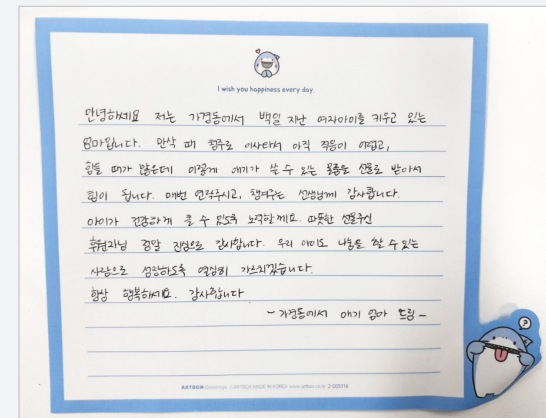 I wish you happiness every day.
안녕하세요 저는 가경동에서 백일 지난 여자아이를 키우고 있는
엄마입니다. 만삭 때 청주로 이사와서 아직 적응이 어렵고,
힘들 때가 많은데 이렇게 애기가 쓸 수 있는 물품을 선물로 받아서
힘이 됩니다. 매번 연락주시고, 챙겨주는 선생님께 감사합니다.
아이가 건강하게 클 수 있도록 노력할께요. 따뜻한 선물주신
후원자님 정말 진심으로 감사합니다. 우리 아이도 나눔을 할 수 있는
사람으로 성장하도록 열심히 가르치겠습니다.
항상 행복하세요. 감사합니다
- 가경동에서 애기 엄마 드림 -
ARTBOX Greetings. ⓒARTBOX MADE IN KOREA www.artbox.co.kr
?